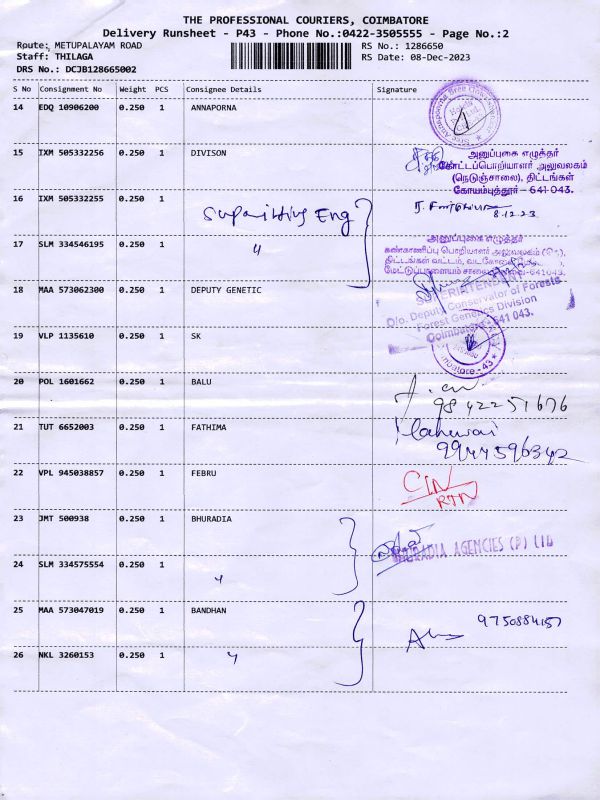 THE PROFESSIONAL COURIERS, COIMBATORE
Delivery Runsheet - P43 - Phone No.:0422-3505555 - Page No.:2
Route: METUPALAYAM ROAD RS No.: 1286650
Staff: THILAGA RS Date: 08-Dec-2023
DRS No.: DCJB128665002
S No Consignment No Weight PCS Consignee Details Signature
14 EDQ 10906200 0.250 1 ANNAPORNA
15 IXM 505332256 0.250 1 DIVISON
அனுப்புகை எழுத்தர்
கோட்டப்பொறியாளர் அலுவலகம்
(நெடுஞ்சாலை), திட்டங்கள்
கோயம்புத்தூர் - 641 043.
16 IXM 505332255 0.250 1
8.12.23
Eng
17 SLM 334546195 0.250 1 "
அனுப்புகை எழுத்தர்
கண்காணிப்பு பொறியாளர் அலுவலகம்
திட்டங்கள் வட்டம்,
மேட்டுப்பாளையம் சாலை
18 MAA 573062300 0.250 1 DEPUTY GENETIC
SUPERINTENDENT
O/o. Deputy Conservator of Forests
Forest Genetics Division
Coimbatore - 641 043.
19 VLP 1135610 0.250 1 SK
20 POL 1601662 0.250 1 BALU
9842251676
21 TUT 6652003 0.250 1 FATHIMA
9944596342
22 VPL 945038857 0.250 1 FEBRU
RTN
23 JMT 500938 0.250 1 BHURADIA
BHURADIA AGENCIES (P) LTD
24 SLM 334575554 0.250 1 "
25 MAA 573047019 0.250 1 BANDHAN
9750884157
26 NKL 3260153 0.250 1 "